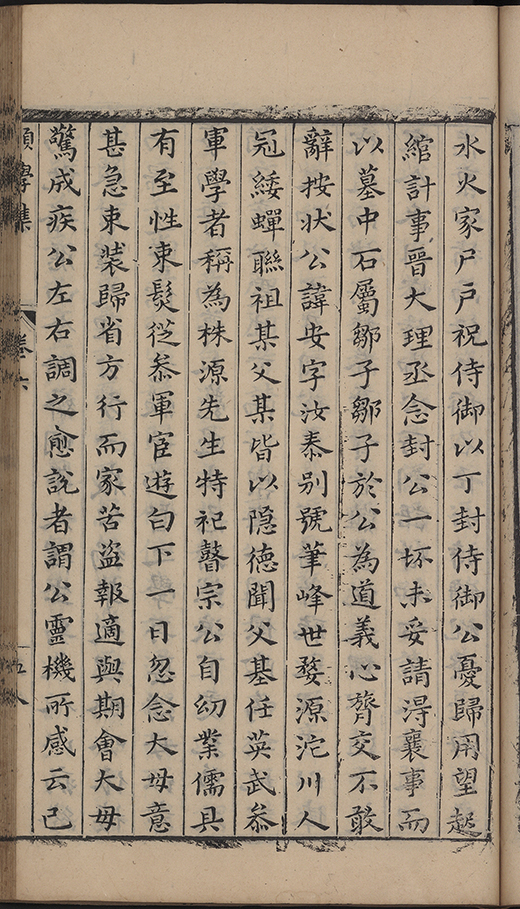 水火家尸戶祝侍御以丁封侍御公憂歸用望起
綰計事晉大理丞念封公一坏未妥請淂襄事而
以墓中石屬鄒子鄒子於公為道義心膂交不敢
辭按狀公諱安字汝泰別號筆峰世婺源沱川人
冠緌蟬聯祖某父某皆以隱德聞父基任英武叅
軍學者稱為株源先生特祀瞽宗公自幼業儒具
有至性束髮從叅軍宦遊白下一日忽念大母意
甚急束裝歸省方行而家苦盜報適與期會大母
驚成疾公左右調之愈說者謂公靈機所感云已
願學集
卷六
五八